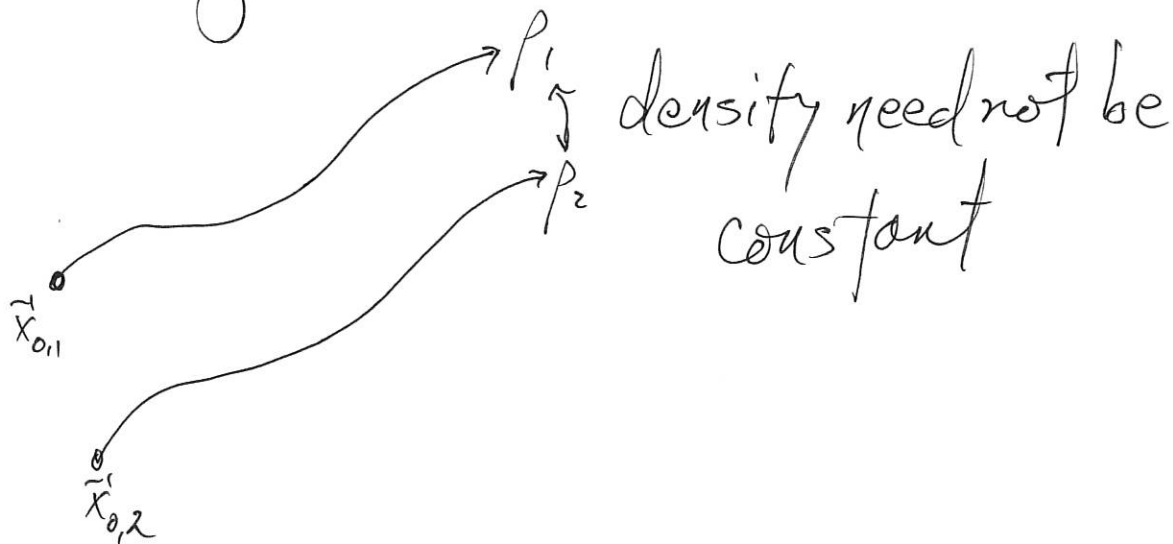 ρ₁
density need not be
ρ₂
constant
x⃗₀,₁
x⃗₀,₂